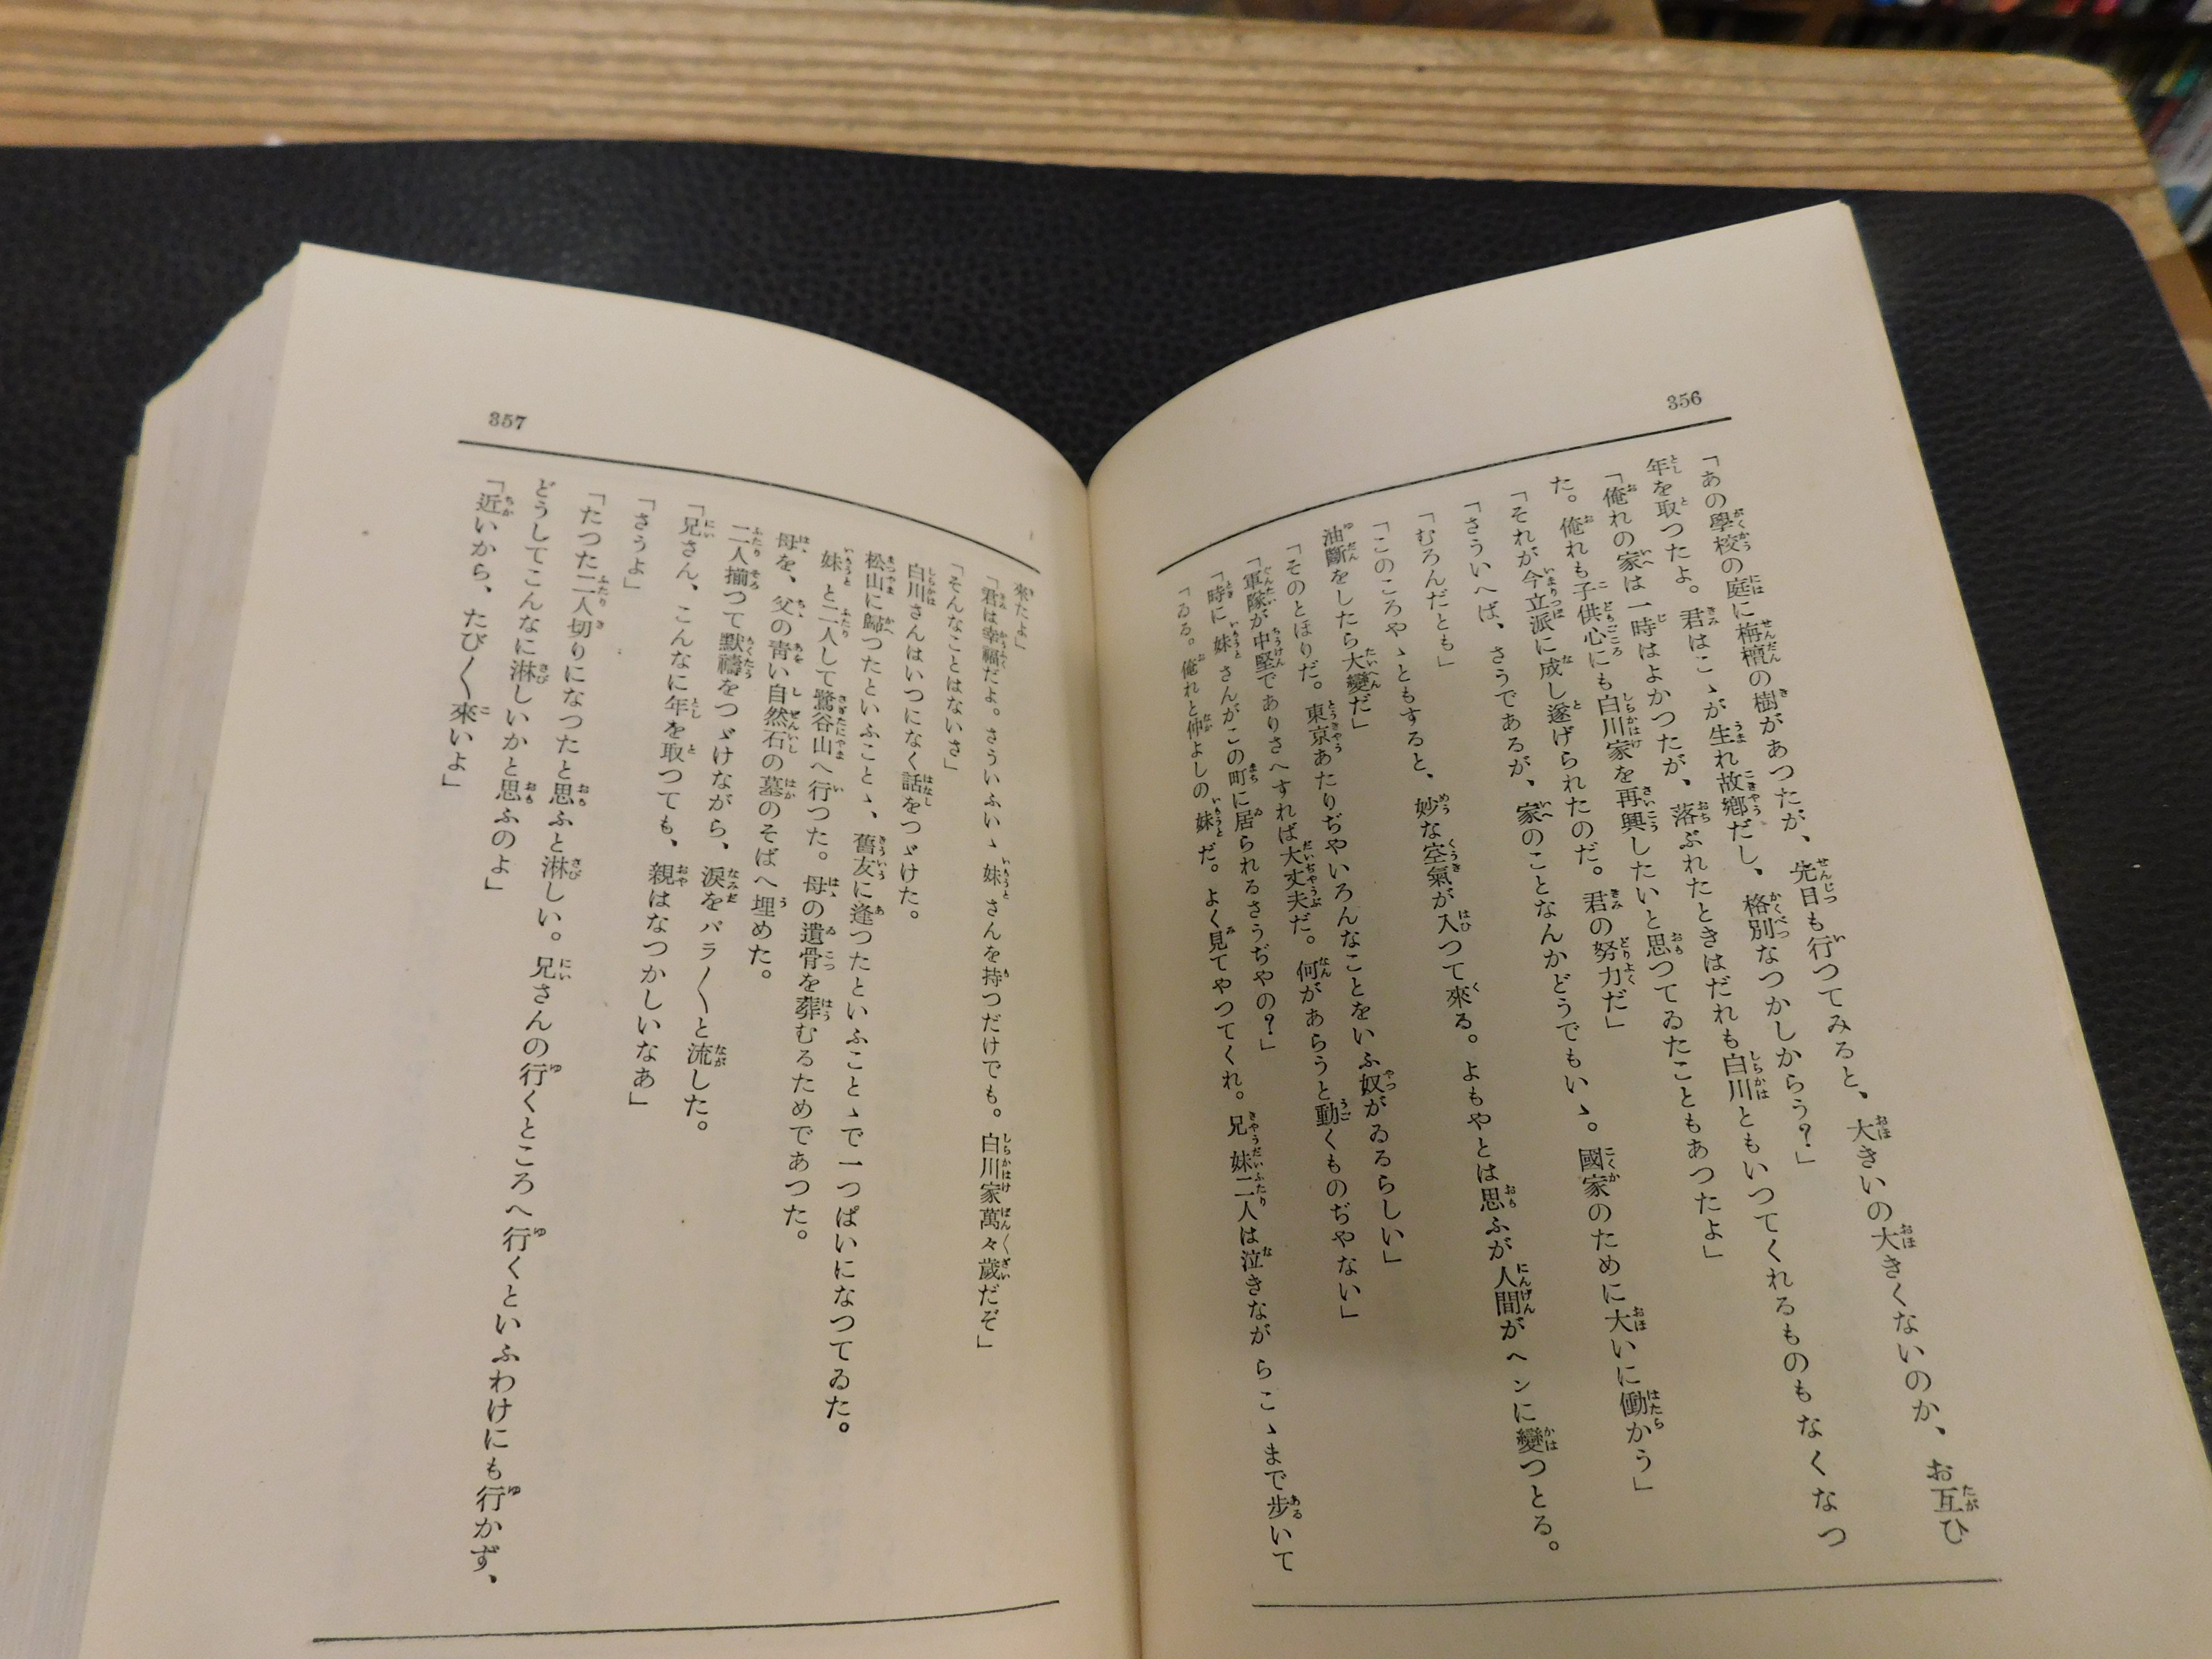 356
「あの學校の庭に栴檀の樹があつたが、先日も行つてみると、大きいの大きくないのか、お互ひ
年を取つたよ。君はこゝが生れ故鄕だし、格別なつかしからう？」
「俺れの家は一時はよかつたが、落ぶれたときはだれも白川ともいつてくれるものもなくなつ
た。俺れも子供心にも白川家を再興したいと思つてゐたこともあつたよ」
「それが今立派に成し遂げられたのだ。君の努力だ」
「さういへば、さうであるが、家のことなんかどうでもいゝ。國家のために大いに働かう」
「むろんだとも」
「このころやゝともすると、妙な空氣が入つて來る。よもやとは思ふが人間がヘンに變つとる。
油斷をしたら大變だ」
「そのとほりだ。東京あたりぢやいろんなことをいふ奴がゐるらしい」
「軍隊が中堅でありさへすれば大丈夫だ。何があらうと動くものぢやない」
「時に妹さんがこの町に居られるさうぢやの？」
「ゐる。俺れと仲よしの妹だ。よく見てやつてくれ。兄妹二人は泣きながらこゝまで歩いて
357
來たよ」
「君は幸福だよ。さういふいゝ妹さんを持つだけでも。白川家萬々歲だぞ」
「そんなことはないさ」
白川さんはいつになく話をつゞけた。
松山に歸つたといふことゝ、舊友に逢つたといふことゝで一つぱいになつてゐた。
妹と二人して鷺谷山へ行つた。母の遺骨を葬むるためであつた。
母を、父の靑い自然石の墓のそばへ埋めた。
二人揃つて默禱をつゞけながら、淚をバラ〳〵と流した。
「兄さん、こんなに年を取つても、親はなつかしいなあ」
「さうよ」
「たつた二人切りになつたと思ふと淋しい。兄さんの行くところへ行くといふわけにも行かず、
どうしてこんなに淋しいかと思ふのよ」
「近いから、たび〳〵來いよ」